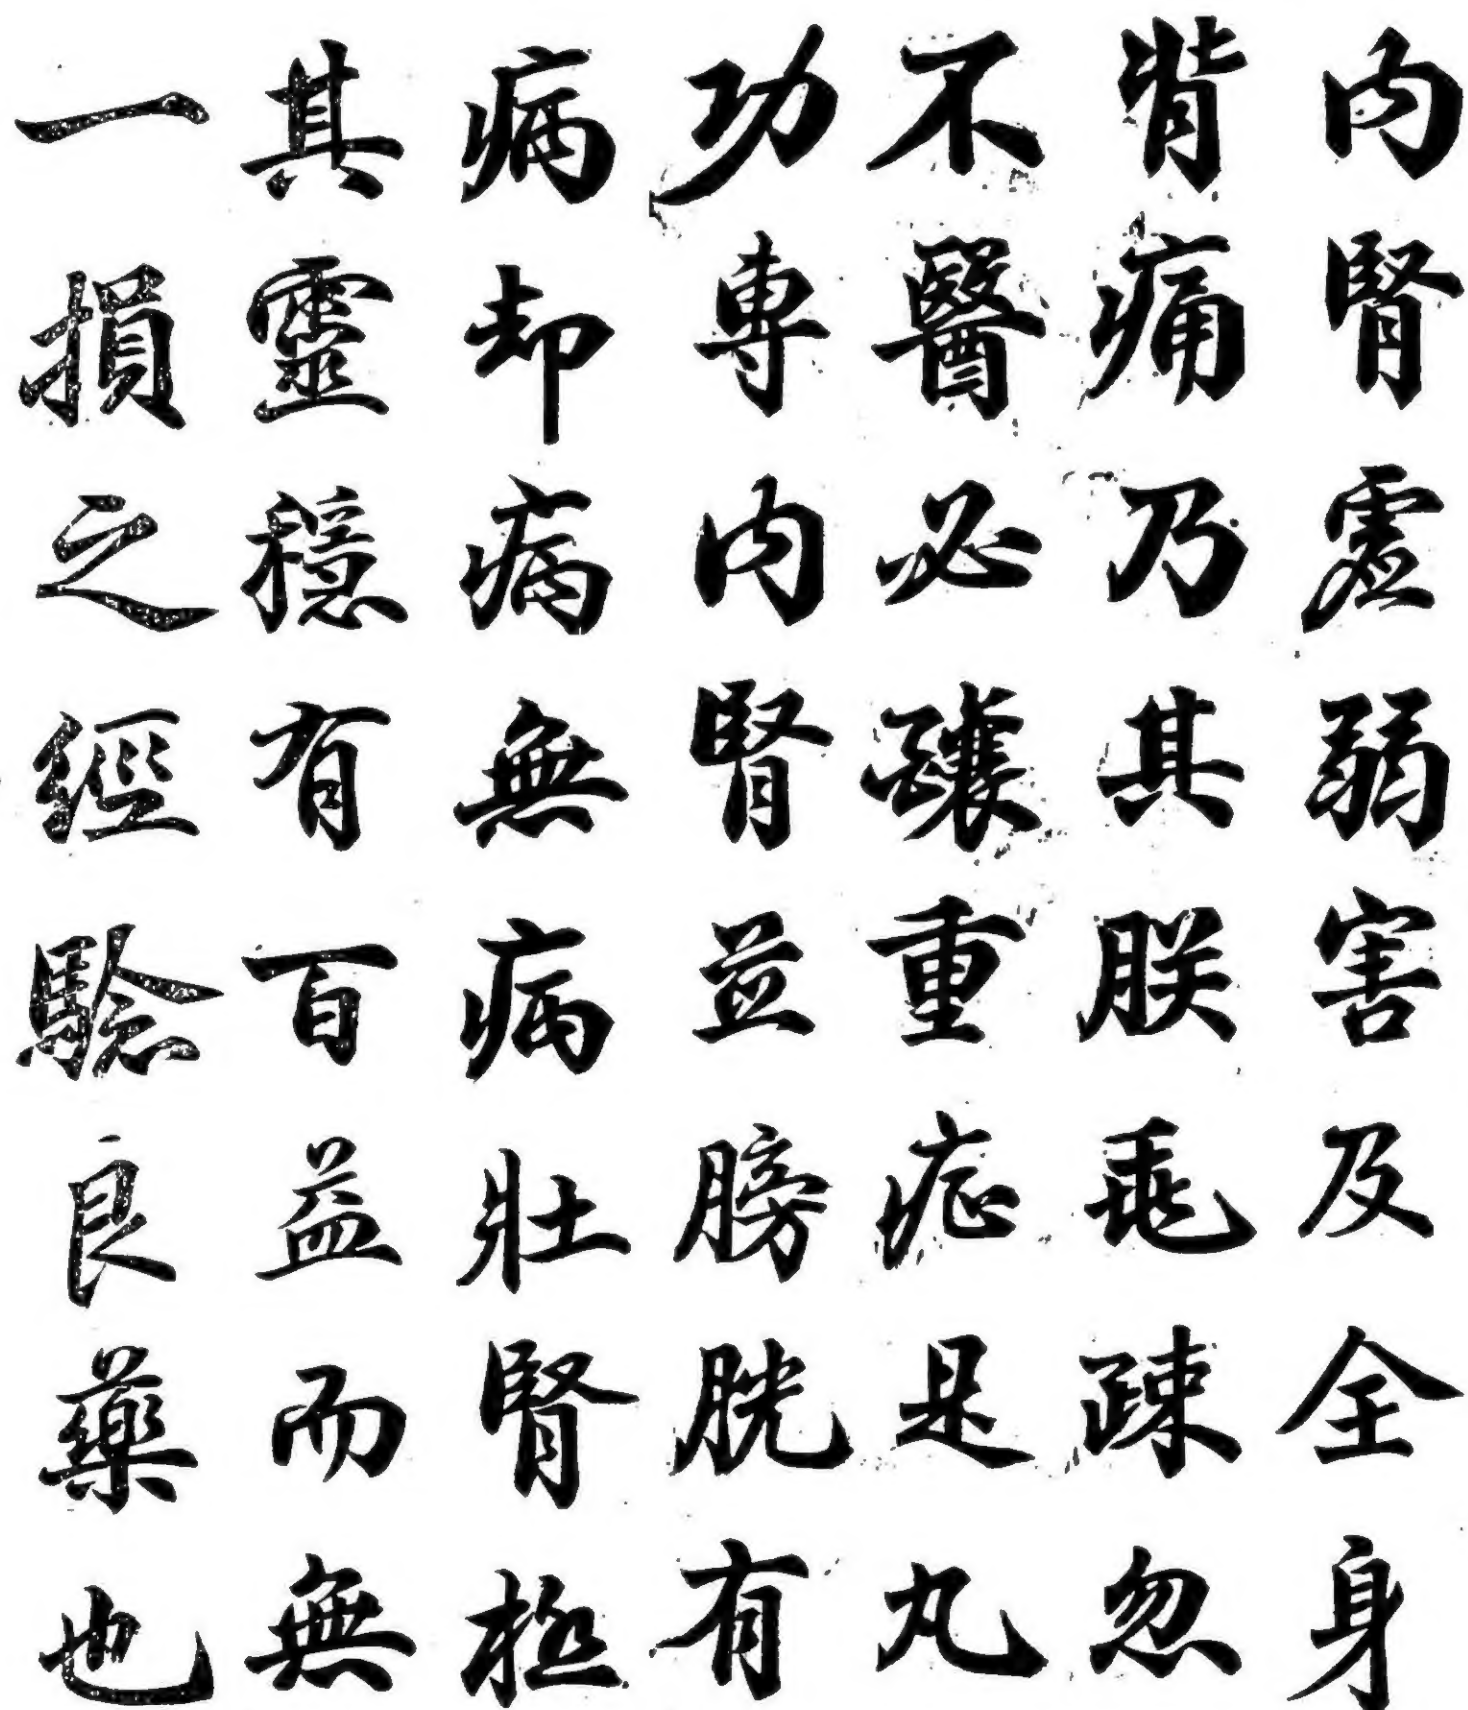 內腎虛弱害及全身
背痛乃其朕兆疎忽
不醫必釀重症是丸
功專內腎並膀胱有
病却病無病壯腎極
其靈穩有百益而無
一損之經驗良藥也